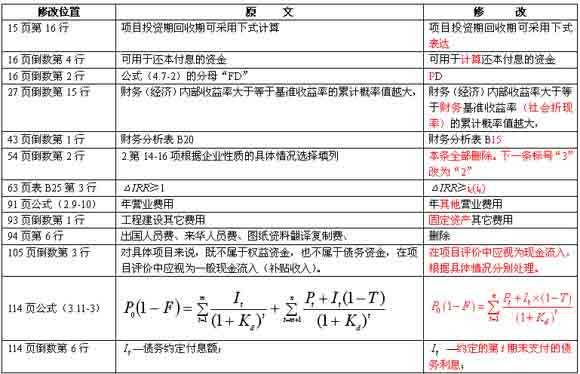 修改位置 原 文 修 改
15 页第 16 行 项目投资期回收期可采用下式计算 项目投资期回收期可采用下式
表达
16 页倒数第 4 行 可用于还本付息的资金 可用于计算还本付息的资金
16 页倒数第 2 行 公式（4.7-2）的分母“FD” PD
27 页倒数第 15 行 财务（经济）内部收益率大于等于基准收益率的累计概率值越大， 财务（经济）内部收益率大于等
于财务基准收益率（社会折现
率）的累计概率值越大，
43 页倒数第 1 行 财务分析表 B20 财务分析表 B15
54 页倒数第 2 行 2.第 14-16 项根据企业性质的具体情况选择填列 本条全部删除。下一条标号“3”
改为“2”
63 页表 B25 第 3 行 △IRR≥1 △IRR≥ic(is)
91 页公式（2.9-10） 年营业费用 年其他营业费用
93 页倒数第 1 行 工程建设其它费用 固定资产其它费用
94 页第 6 行 出国人员费、来华人员费、图纸资料翻译复制费、 删除
105 页倒数第 3 行 对具体项目来说，既不属于权益资金，也不属于债务资金，在项
目评价中应视为一般现金流入（补贴收入）。 在项目评价中应视为现金流入，
根据具体情况分别处理。
114 页公式（3.11-3） P0(1−F)=∑(t=1..m) It/(1+Kd)^t + ∑(t=m+1..n) (Pt+It(1−T))/(1+Kd)^t P0(1−F)=∑(t=1..n) (Pt+It×(1−T))/(1+Kd)^t
114 页倒数第 6 行 It —债务约定付息额； It —约定的第 t 期末支付的债
务利息；